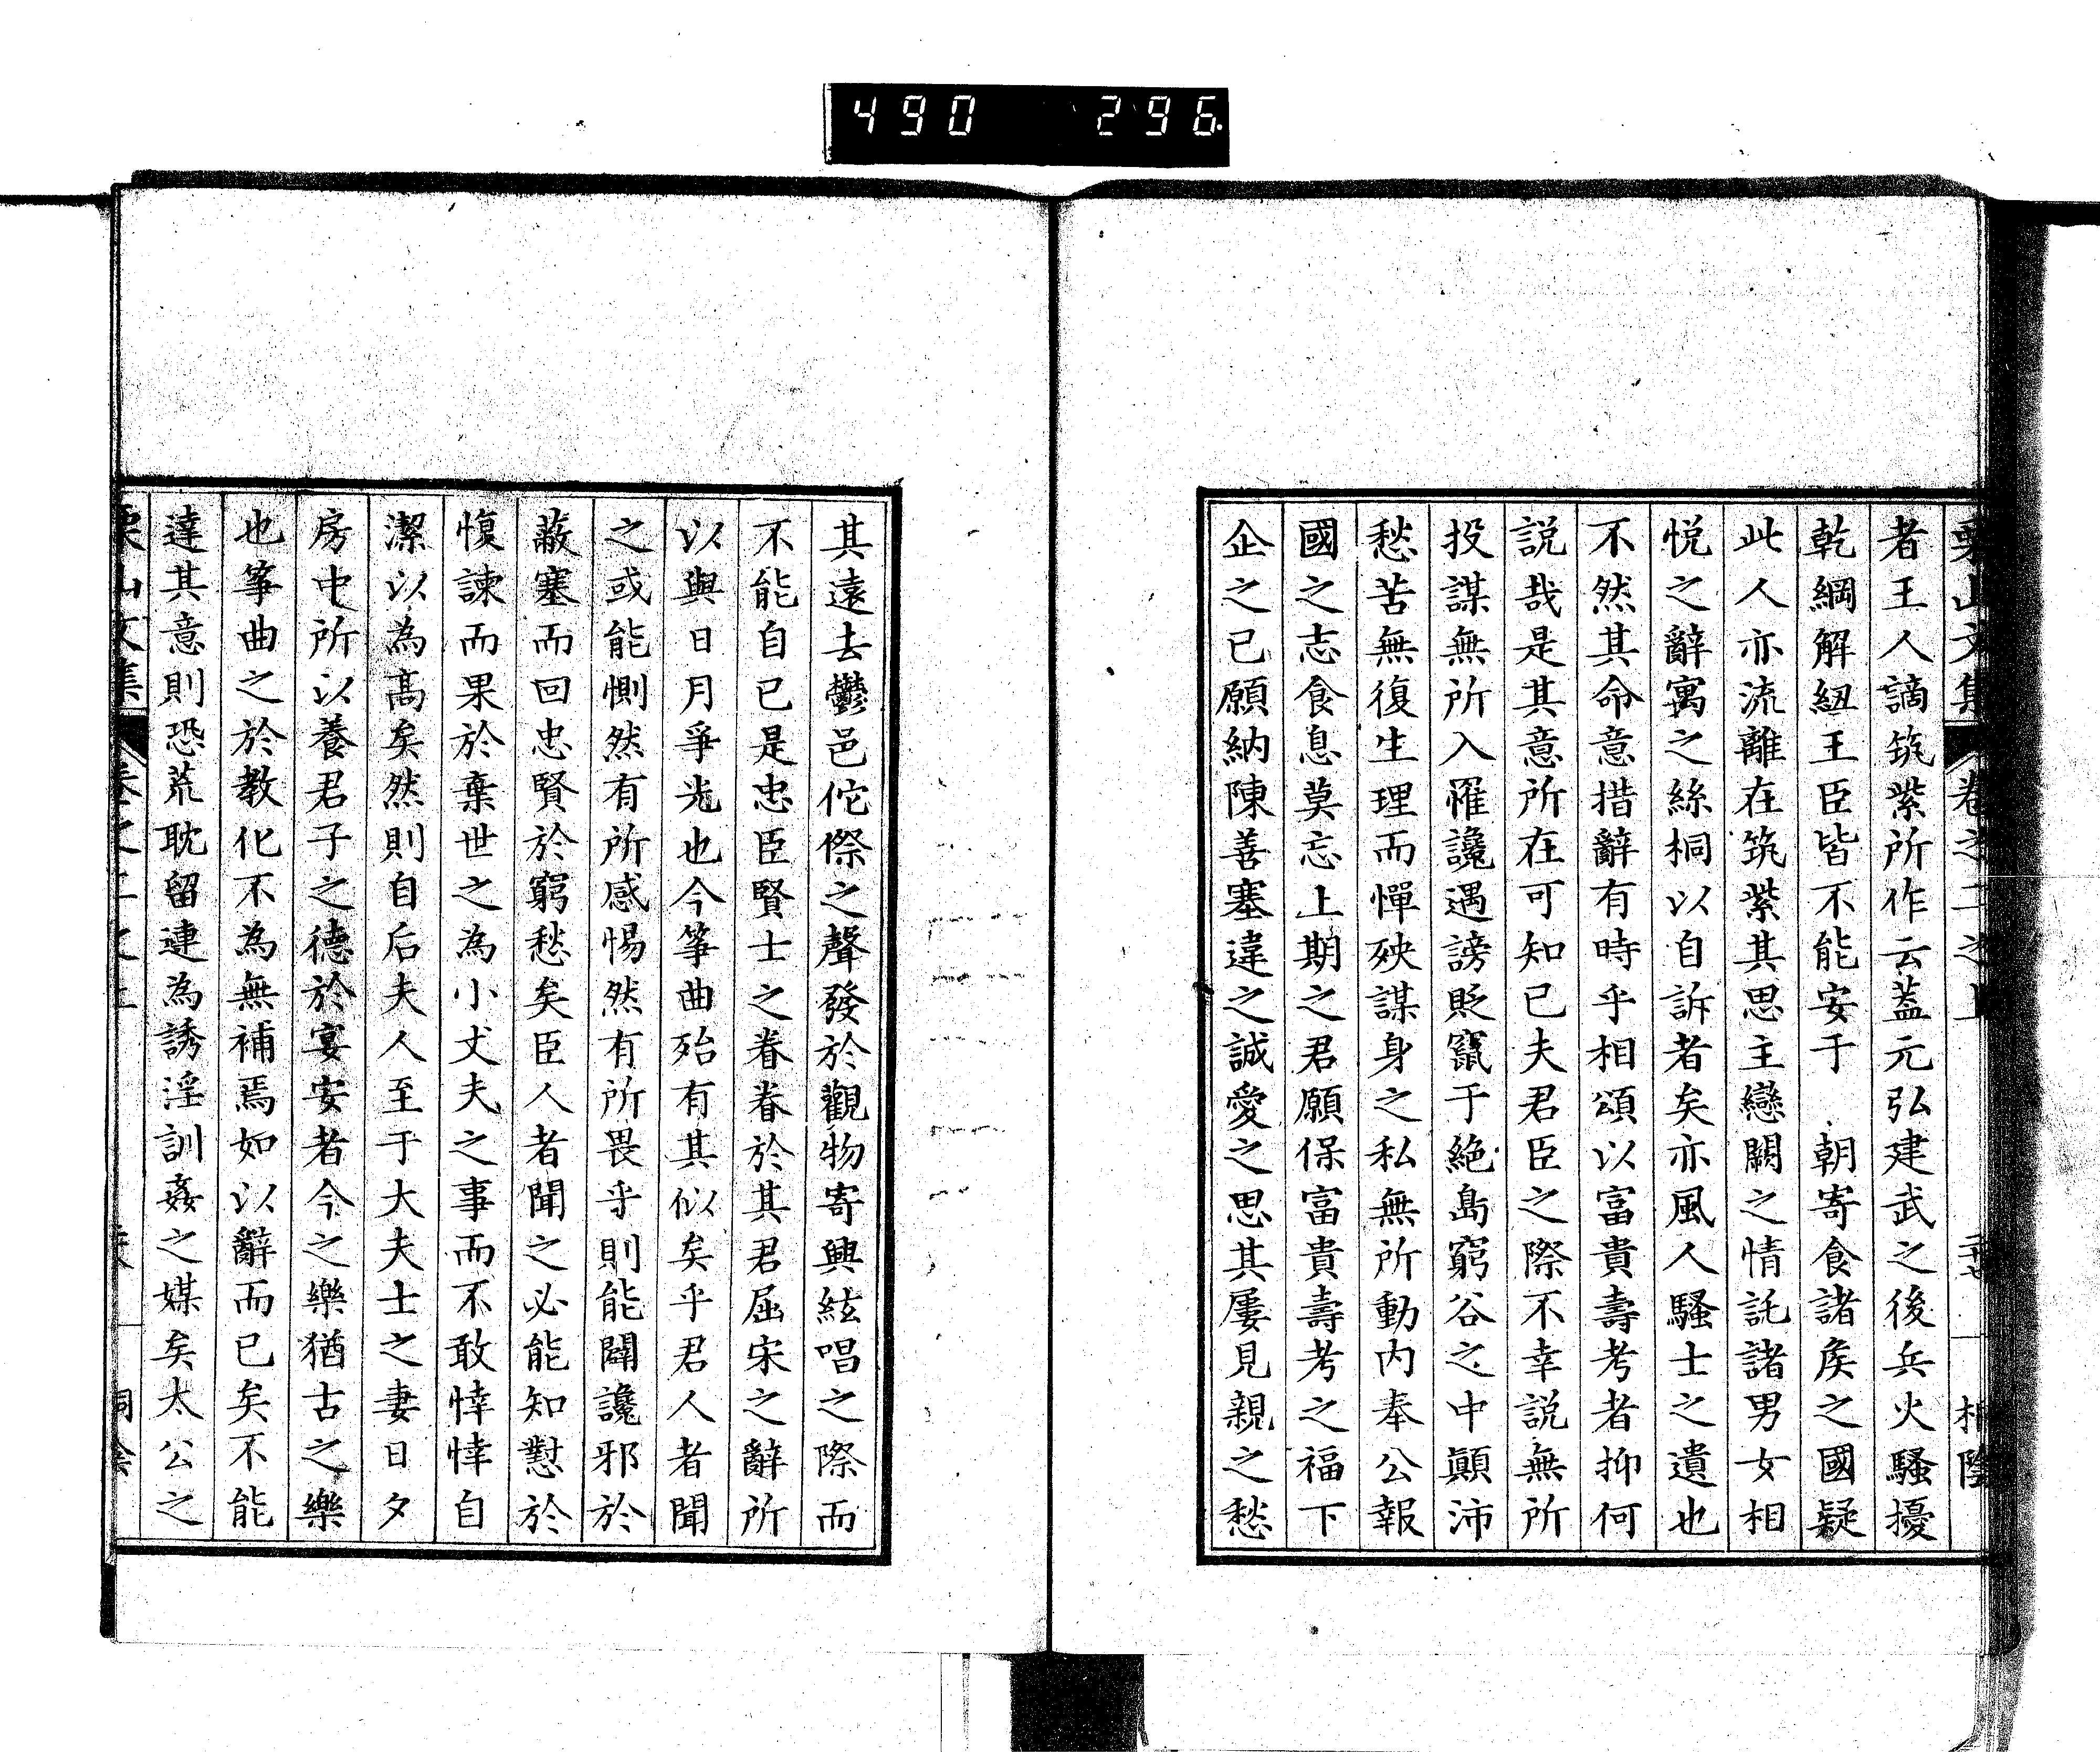 490 296
栗山文集 卷之二之上 二十七
者王人謫筑紫所作云蓋元弘建武之後兵火騷擾
乾綱解紐王臣皆不能安于　朝寄食諸矦之國疑
此人亦流離在筑紫其思主戀闕之情託諸男女相
悦之辭寓之絲桐以自訴者矣亦風人騷士之遺也
不然其命意措辭有時乎相頌以富貴壽考者抑何
説哉是其意所在可知已夫君臣之際不幸説無所
投謀無所入罹讒遇謗貶竄于絶島窮谷之中顚沛
愁苦無復生理而憚殃謀身之私無所動内奉公報
國之志食息莫忘上期之君願保富貴壽考之福下
企之已願納陳善塞違之誠愛之思其屢見親之愁
其遠去鬱邑侘傺之聲發於觀物寄興絃唱之際而
不能自已是忠臣賢士之眷眷於其君屈宋之辭所
以與日月爭光也今箏曲殆有其似矣乎君人者聞
之或能惻然有所感惕然有所畏乎則能闢讒邪於
蔽塞而回忠賢於窮愁矣臣人者聞之必能知懟於
愎諫而果於棄世之為小丈夫之事而不敢悻悻自
潔以為髙矣然則自后夫人至于大夫士之妻日夕
房中所以養君子之德於宴安者今之樂猶古之樂
也箏曲之於教化不為無補焉如以辭而已矣不能
達其意則恐荒耽留連為誘淫訓姦之媒矣太公之
栗山文集 卷之二之上